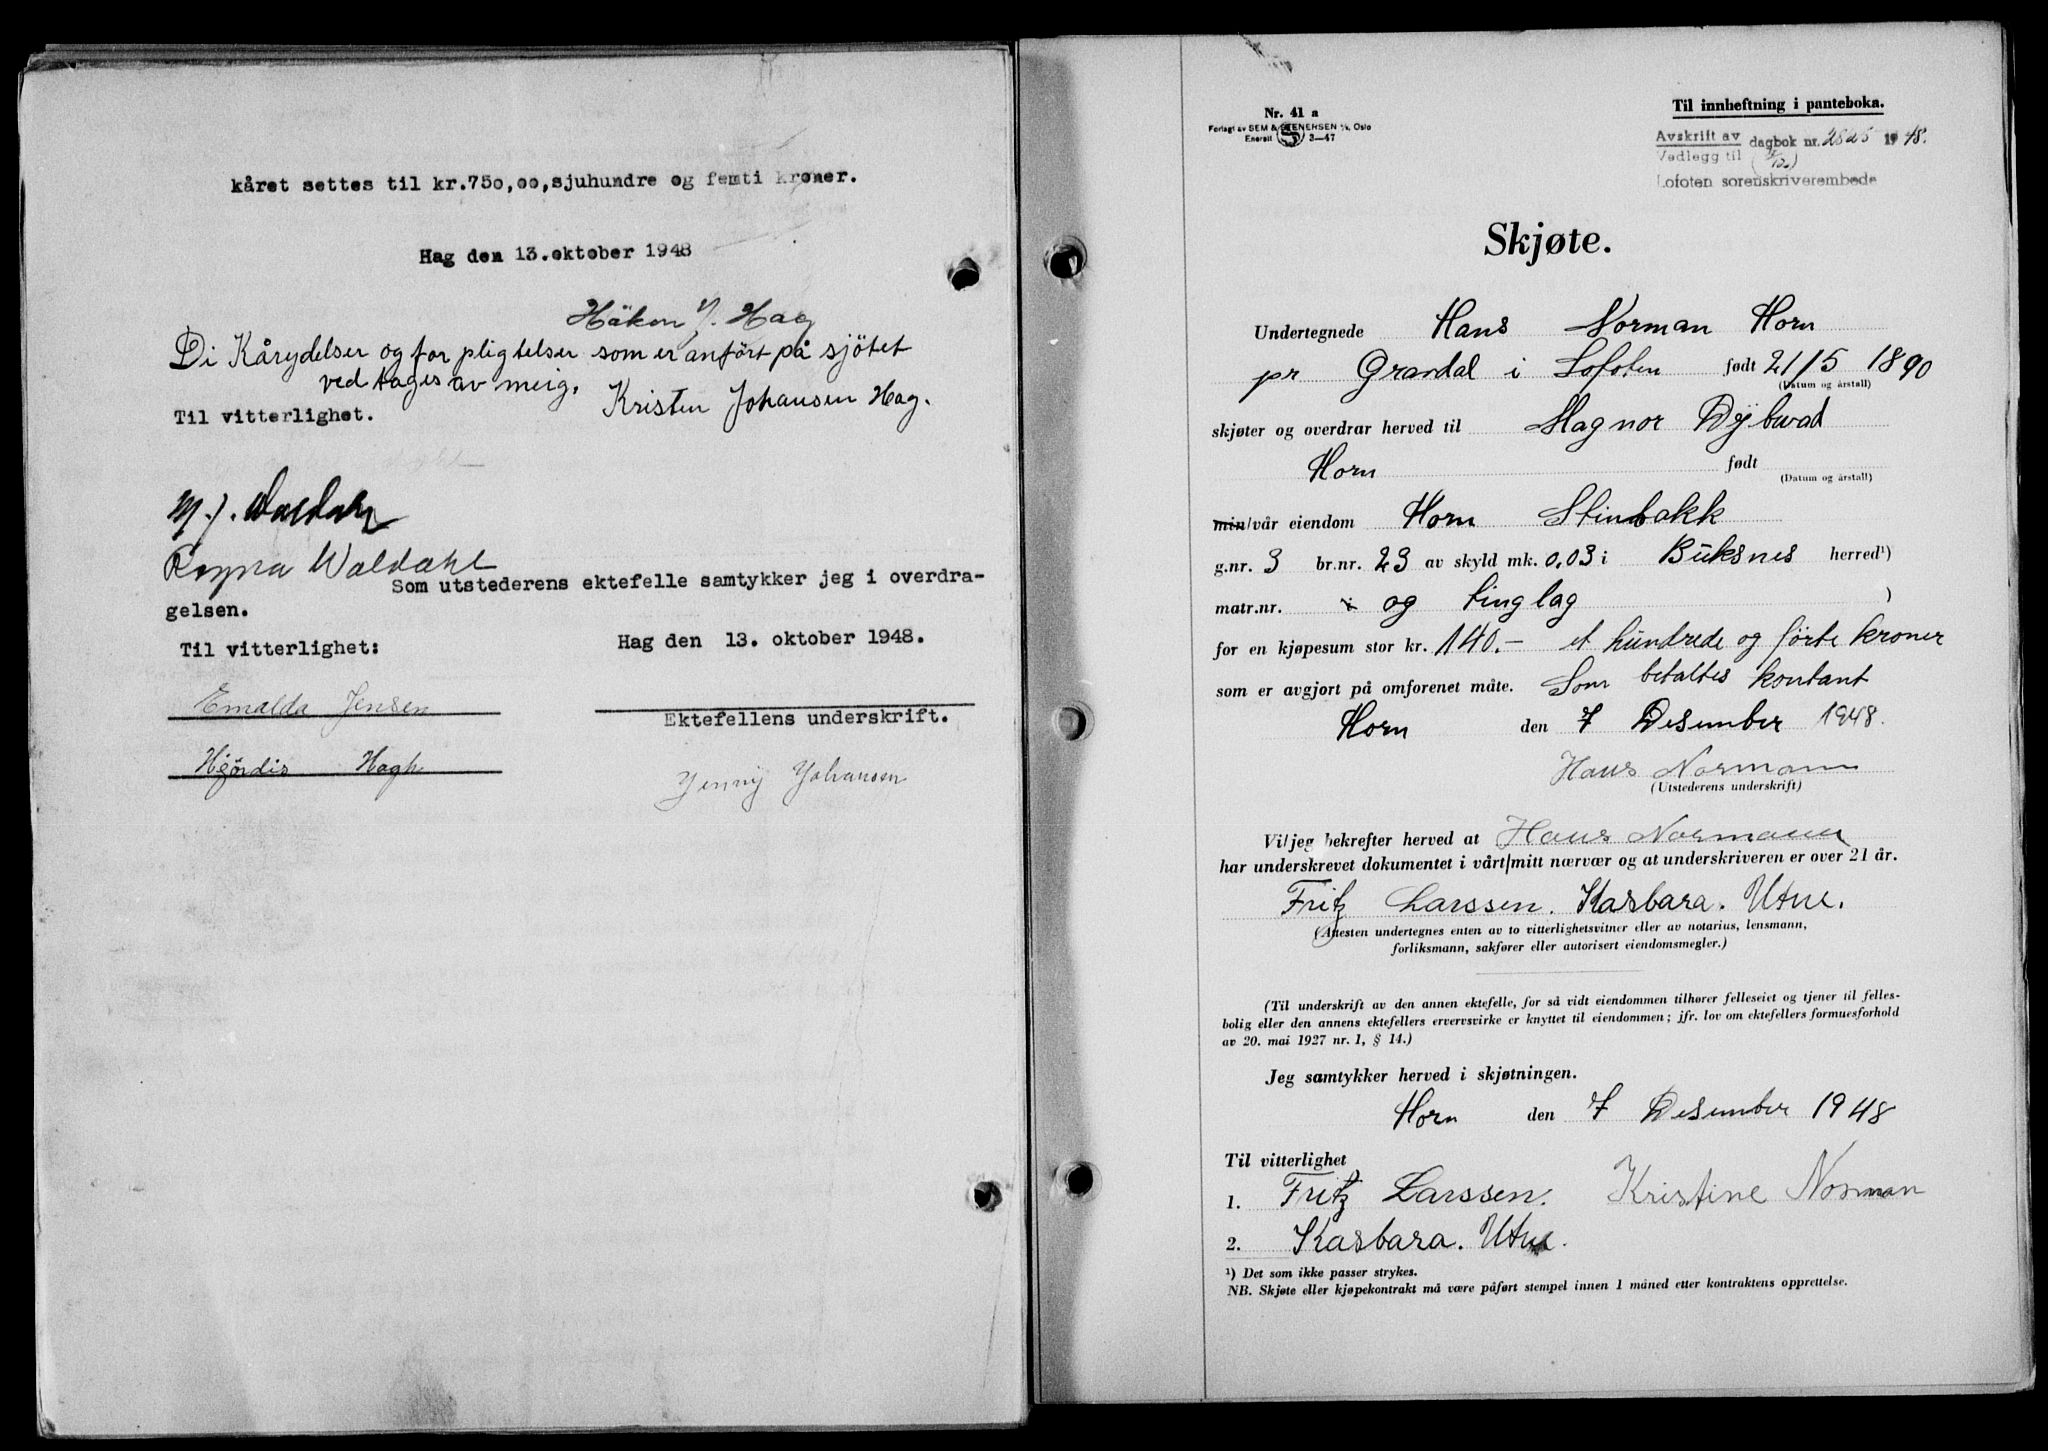 kåret settes til kr.750,00,sjuhundre og femti kroner.
Hag den 13.oktober 1948
Håkon J. Hag
Di Kårydelser og for pligtelser som er anført på sjötet
ved tages av meig.
Kristen Johansen Hag.
Til vitterlighet.
M. J. Waldahl
Ragna Waldahl
Som utstederens ektefelle samtykker jeg i overdra-
gelsen.
Til vitterlighet:
Hag den 13. oktober 1948.
Emalda Jensen
Ektefellens underskrift.
Hjørdis Hagh
Jenny Johansen
Nr. 41 a
Forlagt av SEM & STENERSEN A/S, Oslo
Enerett S 3—47
Til innheftning i panteboka.
Avskrift av
Vedlegg til
dagbok nr. 2825 1948.
Lofoten sorenskriverembede
Skjøte.
Undertegnede Hans Norman Horn
pr Gravdal i Lofoten født 21/5 1890
(Datum og årstall)
skjøter og overdrar herved til Magnor Dybwad
Horn født
(Datum og årstall)
min/vår eiendom Horn Stinbakk
g.nr. 3 br.nr. 23 av skyld mk. 0,03 i Buksnes herred¹)
matr.nr. i og tinglag )
for en kjøpesum stor kr. 140.- et hundrede og førte kroner
som er avgjort på omforenet måte. Som betaltes kontant
Horn den 7 Desember 1948.
Hans Normann
(Utstederens underskrift)
Vi/jeg bekrefter herved at Hans Normann
har underskrevet dokumentet i vårt/mitt nærvær og at underskriveren er over 21 år.
Fritz Larssen. Kasbara. Utne.
(Attesten undertegnes enten av to vitterlighetsvitner eller av notarius, lensmann,
forliksmann, sakfører eller autorisert eiendomsmegler.)
(Til underskrift av den annen ektefelle, for så vidt eiendommen tilhører felleseiet og tjener til felles-
bolig eller den annens ektefellers ervervsvirke er knyttet til eiendommen; jfr. lov om ektefellers formuesforhold
av 20. mai 1927 nr. 1, § 14.)
Jeg samtykker herved i skjøtningen.
Horn den 7 Desember 1948
Til vitterlighet
1. Fritz Larssen. Kristine Norman
2. Kasbara. Utne.
¹) Det som ikke passer strykes.
NB. Skjøte eller kjøpekontrakt må være påført stempel innen 1 måned etter kontraktens opprettelse.